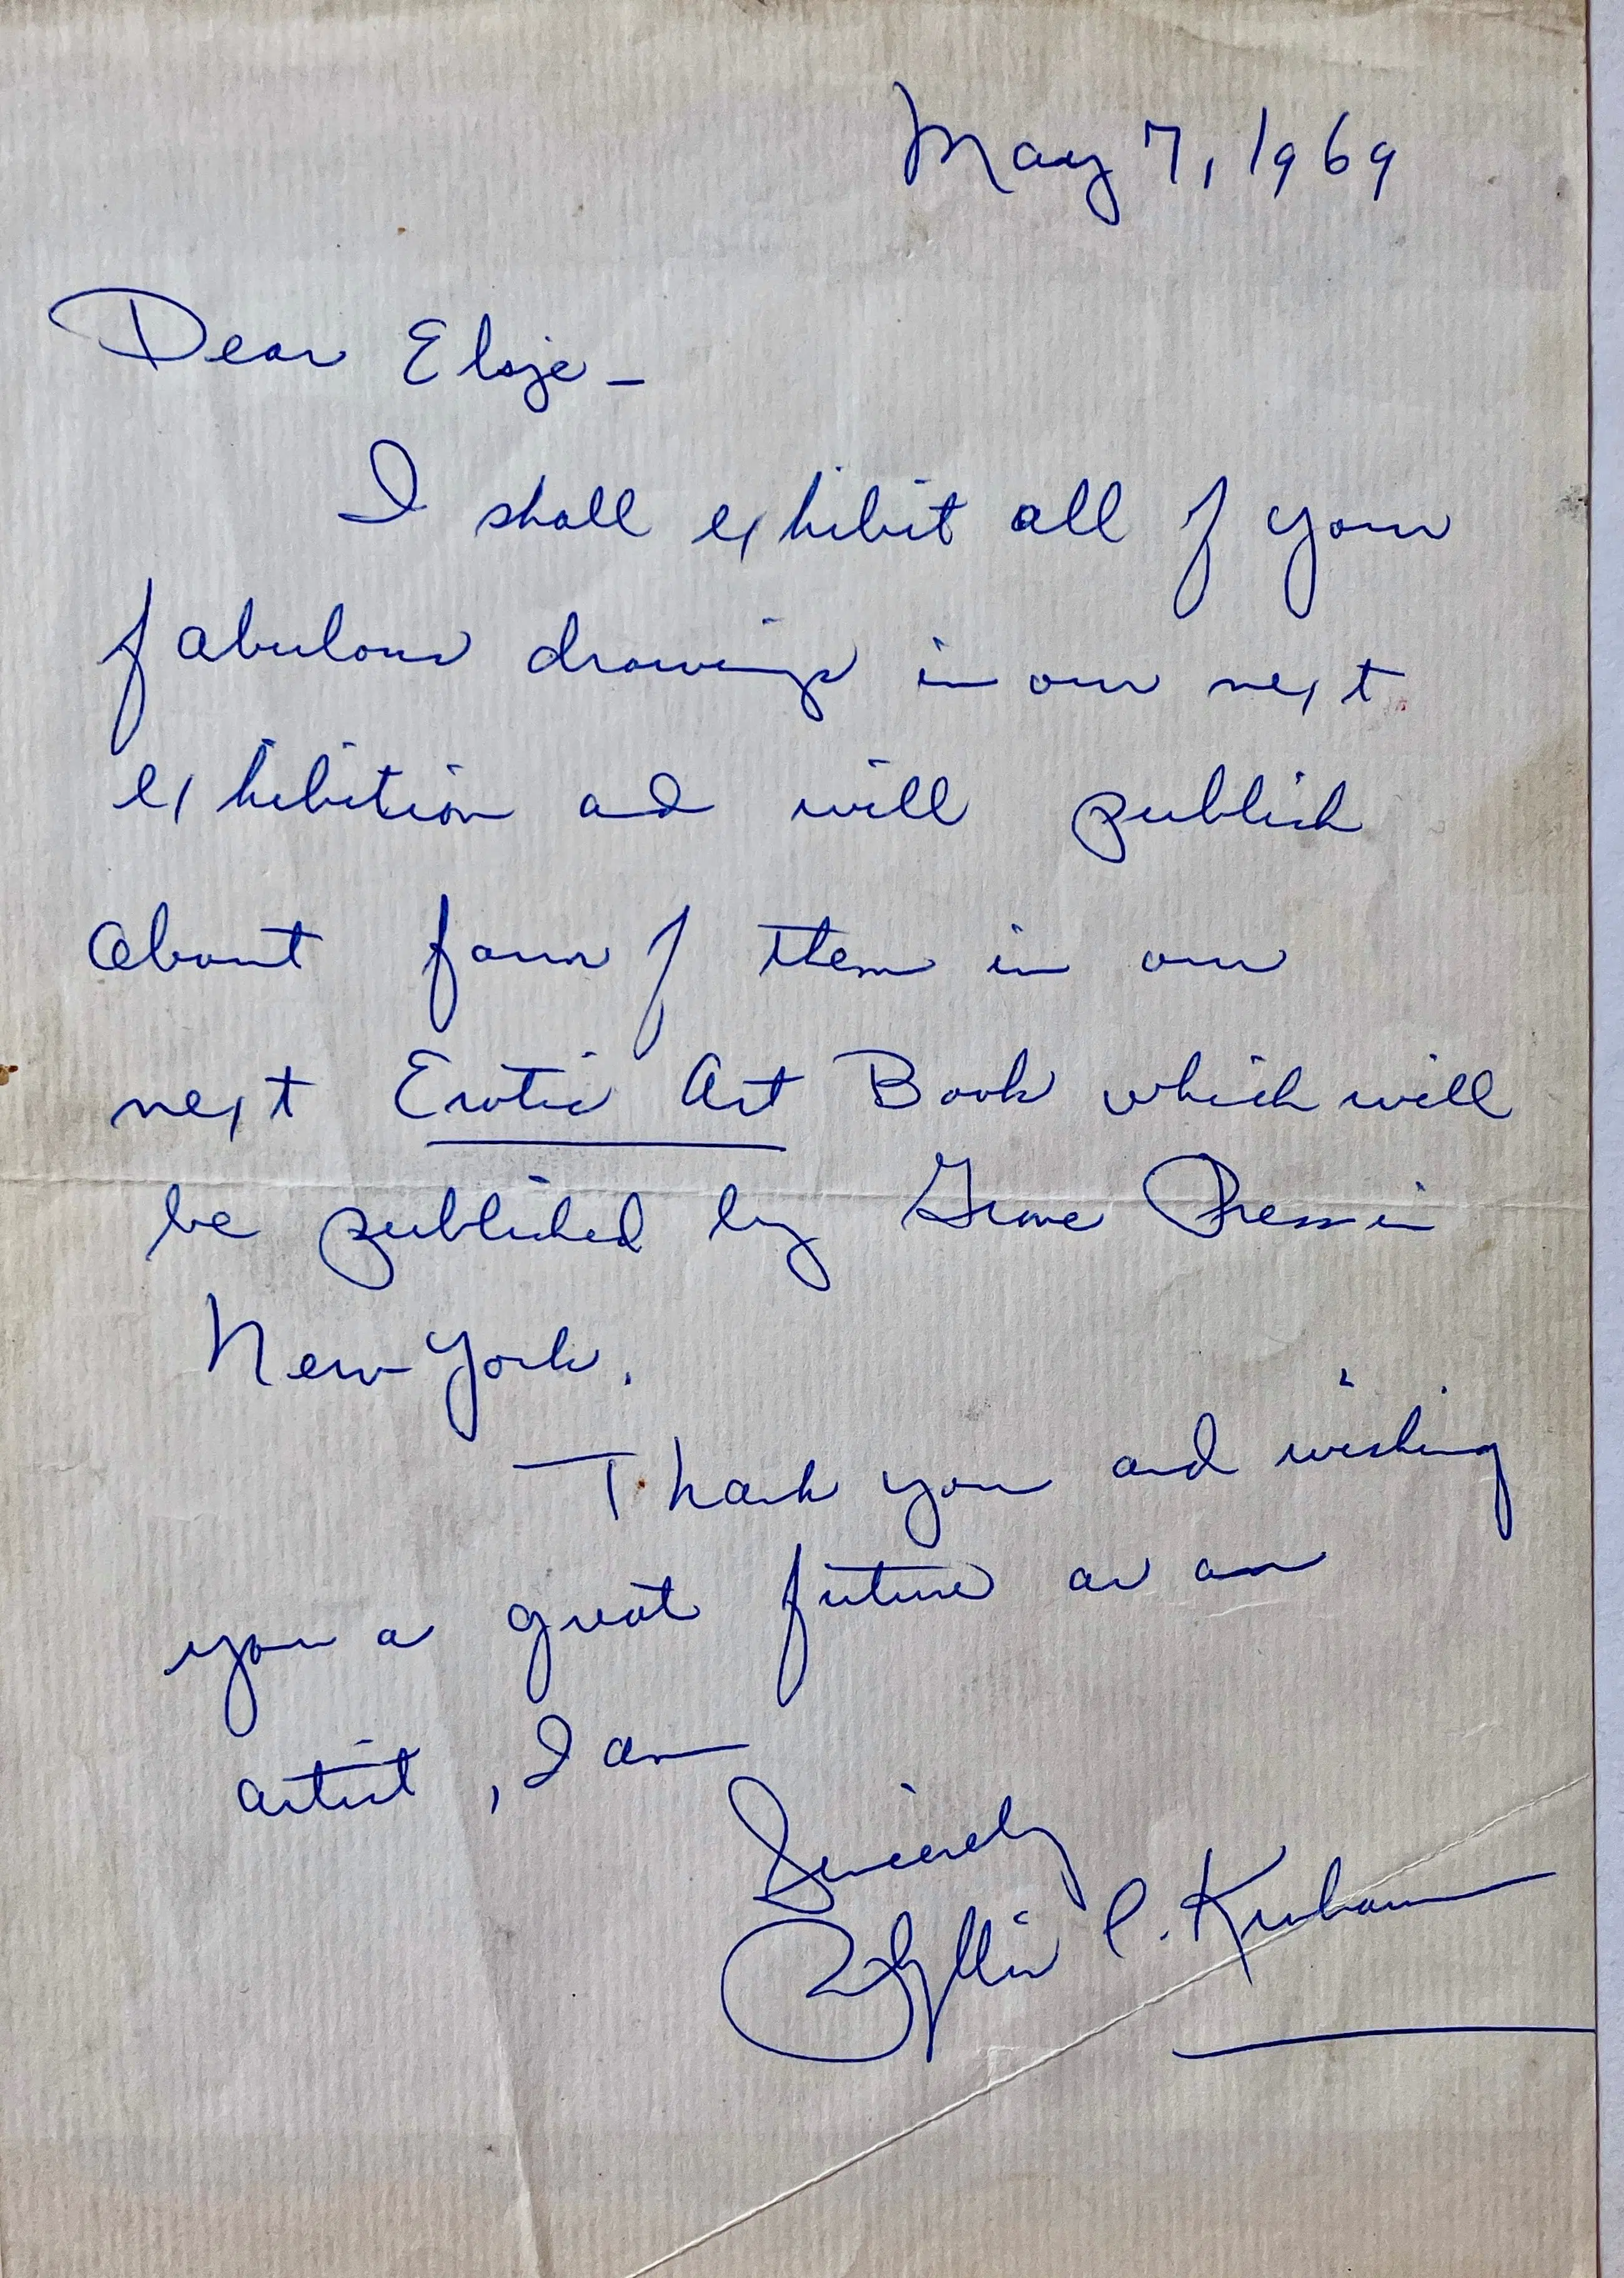 May 7, 1969
Dear Elsje –
I shall exhibit all of your
fabulous drawings in our next
exhibition and will publish
about four of them in our
next Erotic Art Book which will
be published by Grove Press in
New York.
Thank you and wishing
you a great future as an
artist, I am
Sincerely
Phyllis C. Kronhausen